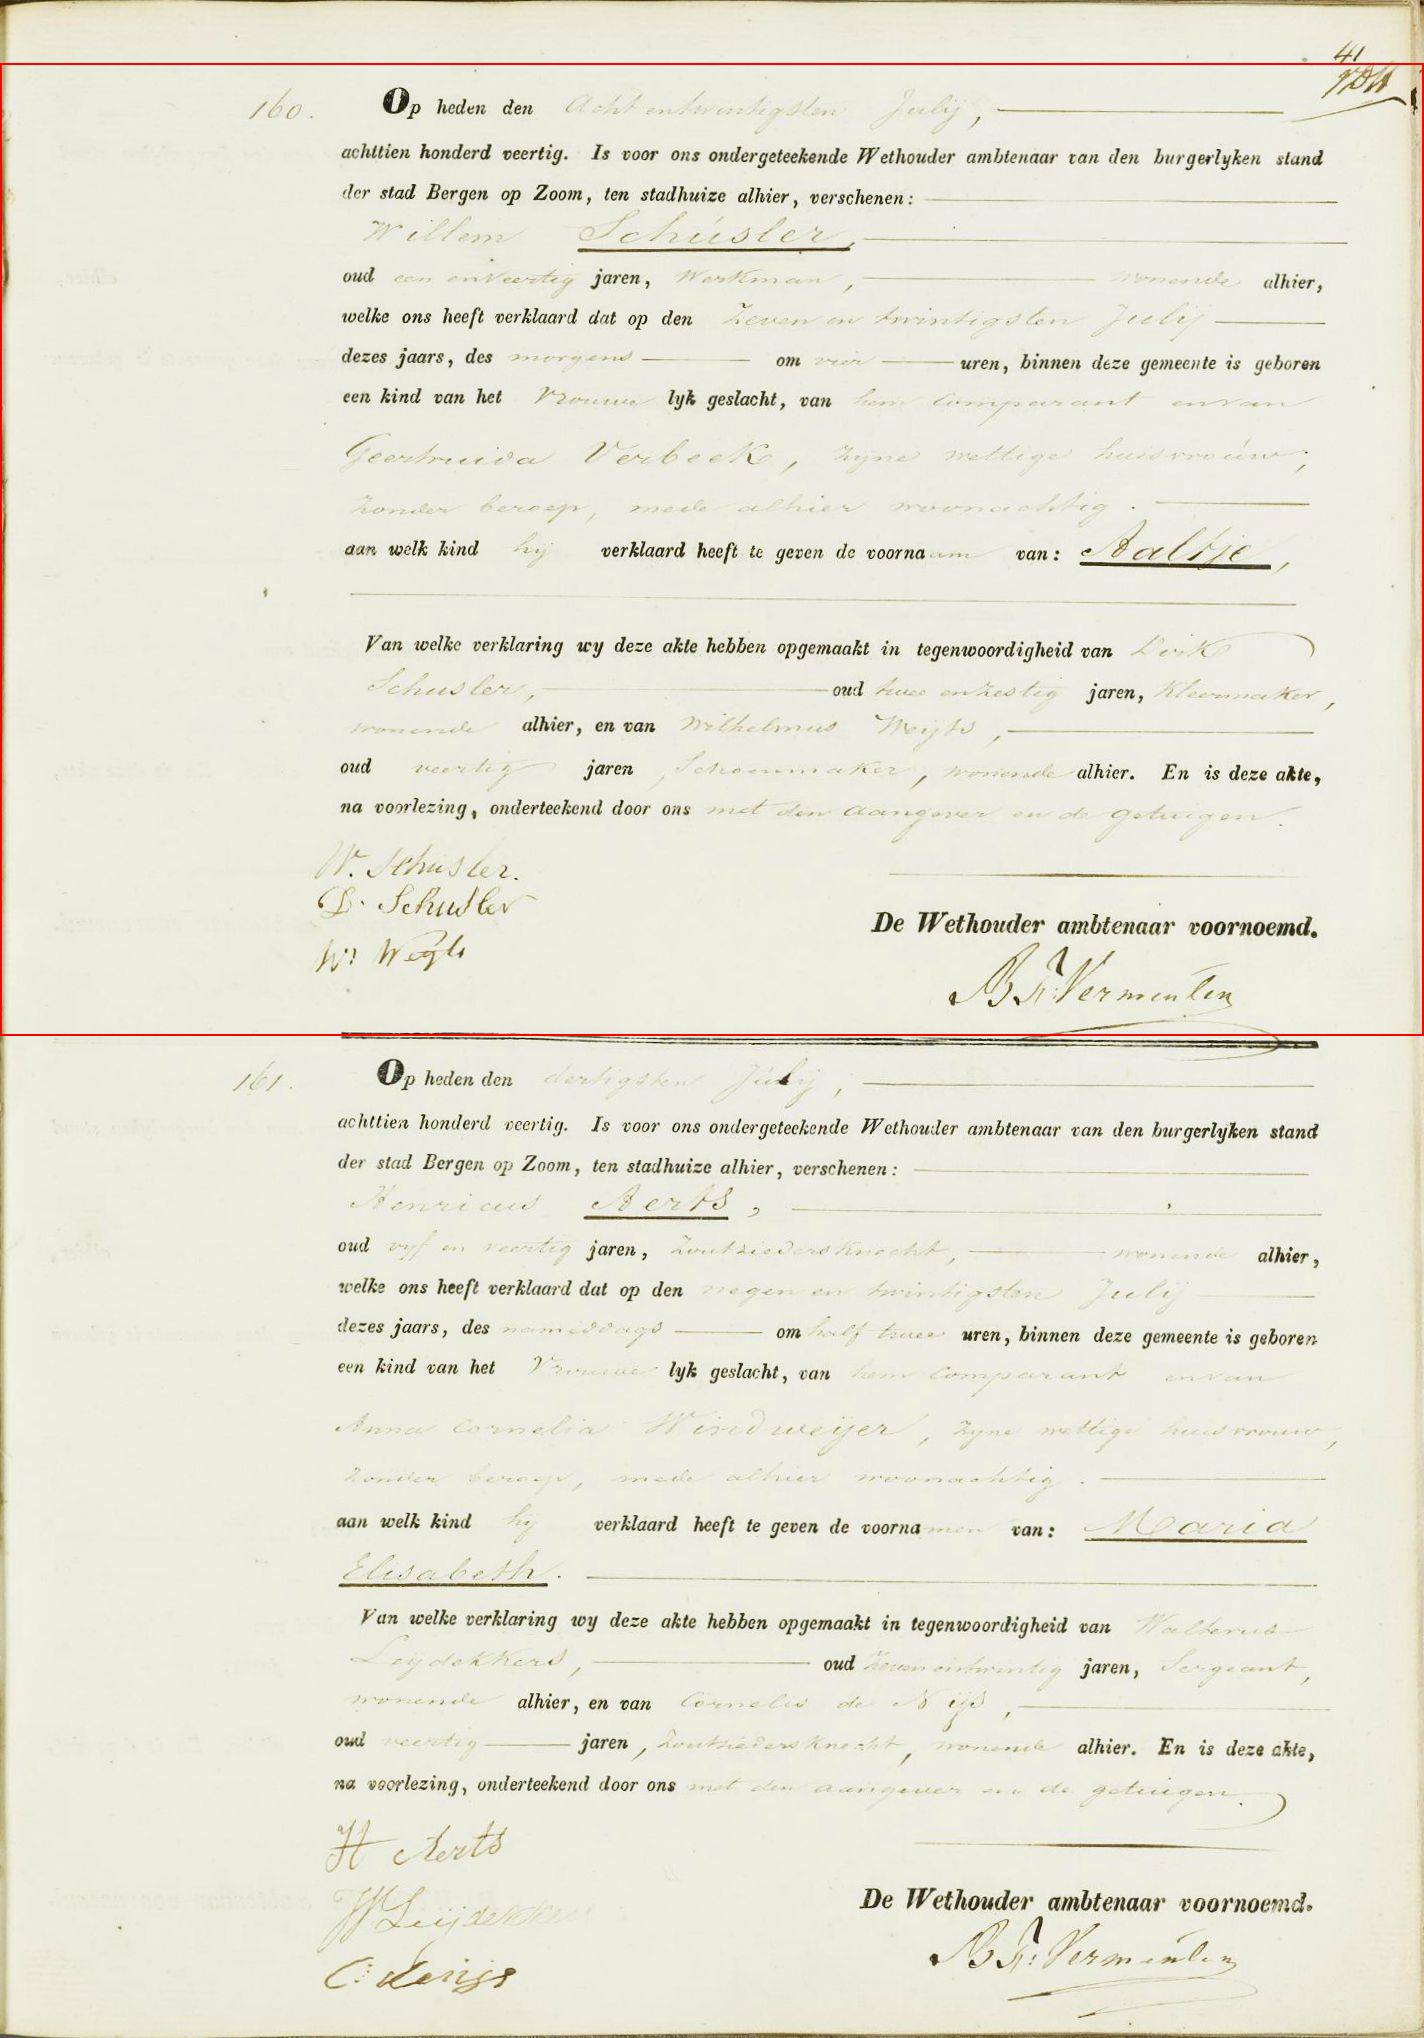 41
160. Op heden den Acht entwintigsten Julij,
achttien honderd veertig. Is voor ons ondergeteekende Wethouder ambtenaar van den burgerlyken stand
der stad Bergen op Zoom, ten stadhuize alhier, verschenen:
Willem Schúsler,
oud een enveertig jaren, Werkman, wonende alhier,
welke ons heeft verklaard dat op den Zeven en twintigsten Julij
dezes jaars, des morgens om vier uren, binnen deze gemeente is geboren
een kind van het Vrouwe lyk geslacht, van hem Comparant envan
Geertruida Verbeek, zyne wettige huisvrouw,
zonder beroep, mede alhier woonachtig.
aan welk kind hij verklaard heeft te geven de voornaam van: Aaltje,
Van welke verklaring wy deze akte hebben opgemaakt in tegenwoordigheid van Dirk
Schusler, oud twee enzestig jaren, Kleermaker,
wonende alhier, en van Wilhelmus Weijts,
oud veertig jaren, Schoenmaker, wonende alhier. En is deze akte,
na voorlezing, onderteekend door ons met den aangever en de getuigen.
W. Schusler.
D. Schusler
De Wethouder ambtenaar voornoemd.
Wm Weyts
B. F. Vermeulen
161. Op heden den dertigsten Júlij,
achttien honderd veertig. Is voor ons ondergeteekende Wethouder ambtenaar van den burgerlyken stand
der stad Bergen op Zoom, ten stadhuize alhier, verschenen:
Henricus Aerts,
oud vyf en veertig jaren, Zoutziedersknecht, wonende alhier,
welke ons heeft verklaard dat op den negen en twintigsten Julij
dezes jaars, des namiddags om half twee uren, binnen deze gemeente is geboren
een kind van het Vrouwe lyk geslacht, van hem Comparant envan
Anna Cornelia Windweijer, zyne wettige huisvrouw,
zonder beroep, mede alhier woonachtig.
aan welk kind hy verklaard heeft te geven de voornamen van: Maria
Elisabeth.
Van welke verklaring wy deze akte hebben opgemaakt in tegenwoordigheid van Walterus
Leydekkers, oud Zevenentwintig jaren, Sergeant,
wonende alhier, en van Cornelis de Nijs,
oud veertig jaren, Zoutziedersknecht, wonende alhier. En is deze akte,
na voorlezing, onderteekend door ons met den aangever en de getuigen.
H Aerts
W Leijdekkers
De Wethouder ambtenaar voornoemd.
C: denijs
B. F. Vermeulen